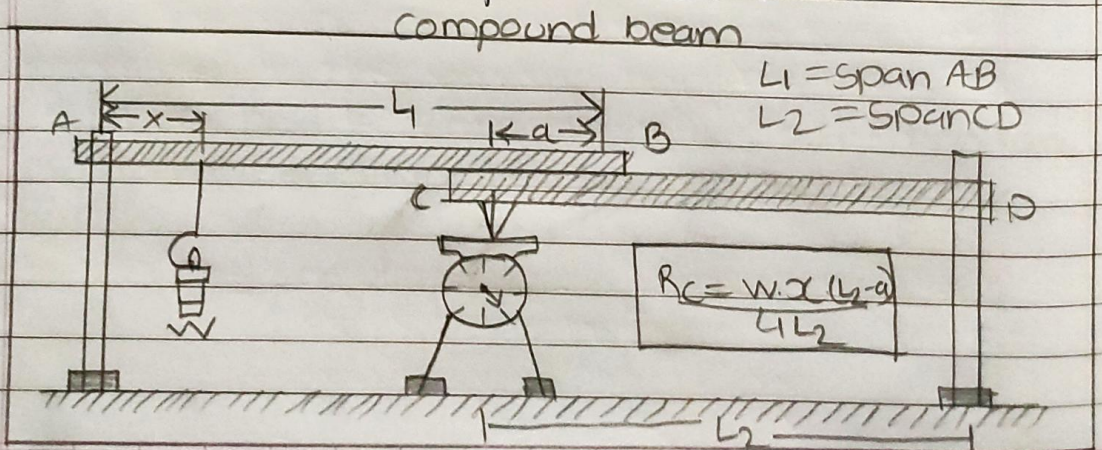 compound beam
L1 = Span AB
L2 = Span CD
L1
A
x
a
B
C
D
W
RC = W.x (L2-a)
L1 L2
L2